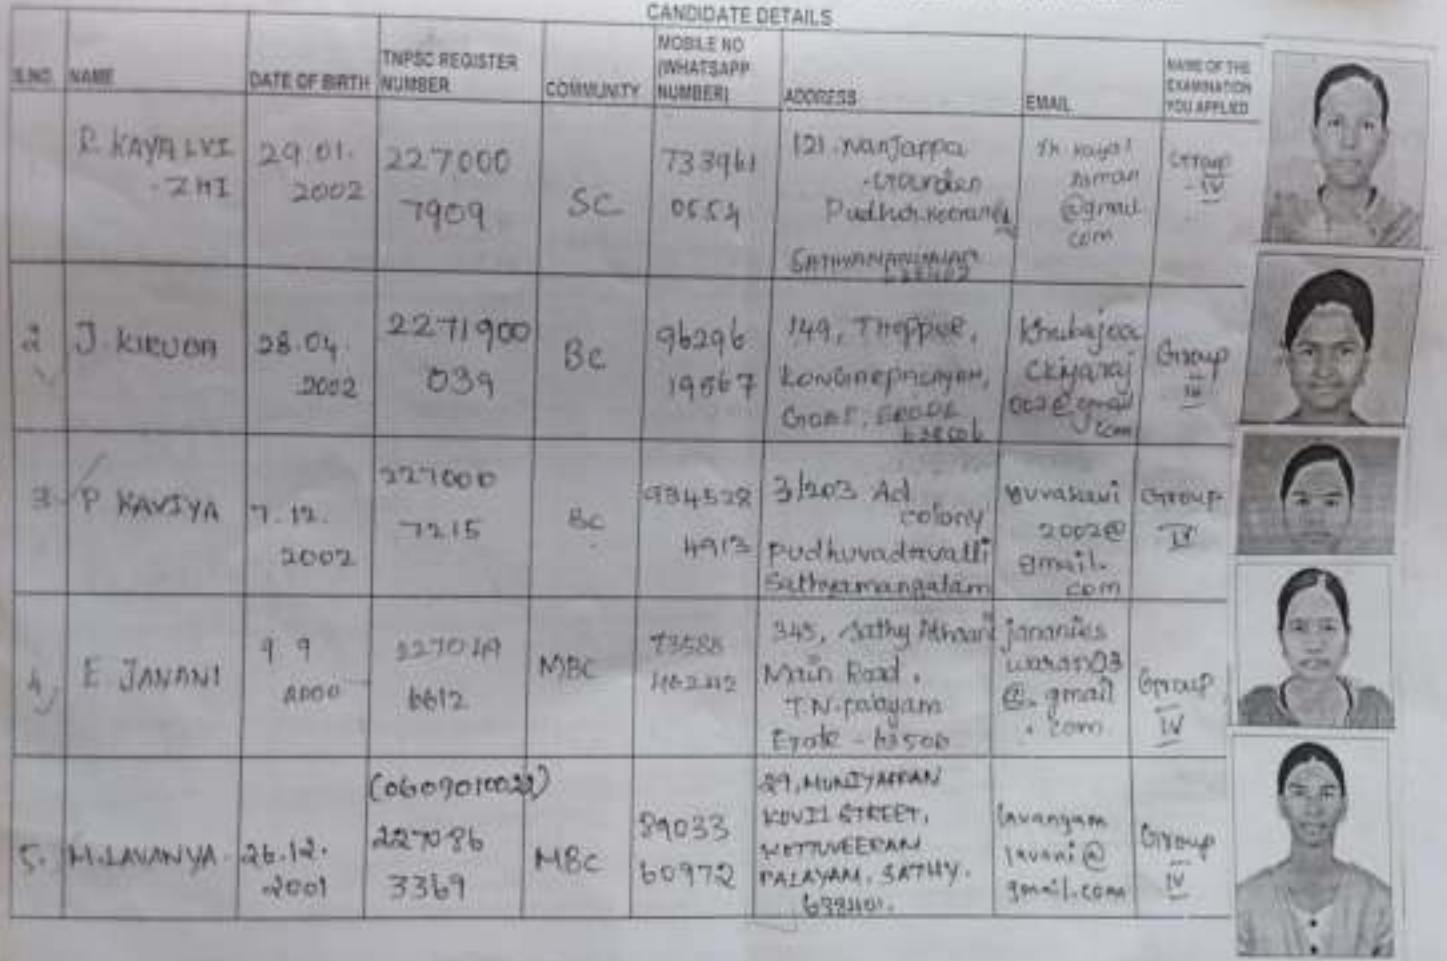 CANDIDATE DETAILS
S.NO. NAME DATE OF BIRTH TNPSC REGISTER NUMBER COMMUNITY MOBILE NO (WHATSAPP NUMBER) ADDRESS EMAIL NAME OF THE EXAMINATION YOU APPLIED
R. KAYALVI
-ZHI
29.01.
2002
227000
7909
SC
733961
0554
121. Nanjappa
Pudhur
Group
IV
2
J.
28.04.
2002
2271900
039
BC
96296
19567
149, THOPPUR,
GOBI, ERODE
Group
IV
3
P KAVIYA
7.12.
2002
227000
7215
BC
984528
4913
3/203 Ad
colony
Pudhuvadavalli
Sathyamangalam
yuvakavi
2002@
gmail.
com
Group
IV
4
E JANANI
9 9
2000
6612
MBC
73588
345, Sathy Athani
Main Road.
T.N. palayam
Erode -
jananies
@. gmail
. com
Group
IV
5.
M.LAVANYA
26.12.
2001
(0609010022)
227086
3369
MBC
89033
60972
29, MUNIYAPPAN
KOVIL STREET,
PALAYAM, SATHY.
638401.
lavangam
lavani@
gmail.com
Group
IV